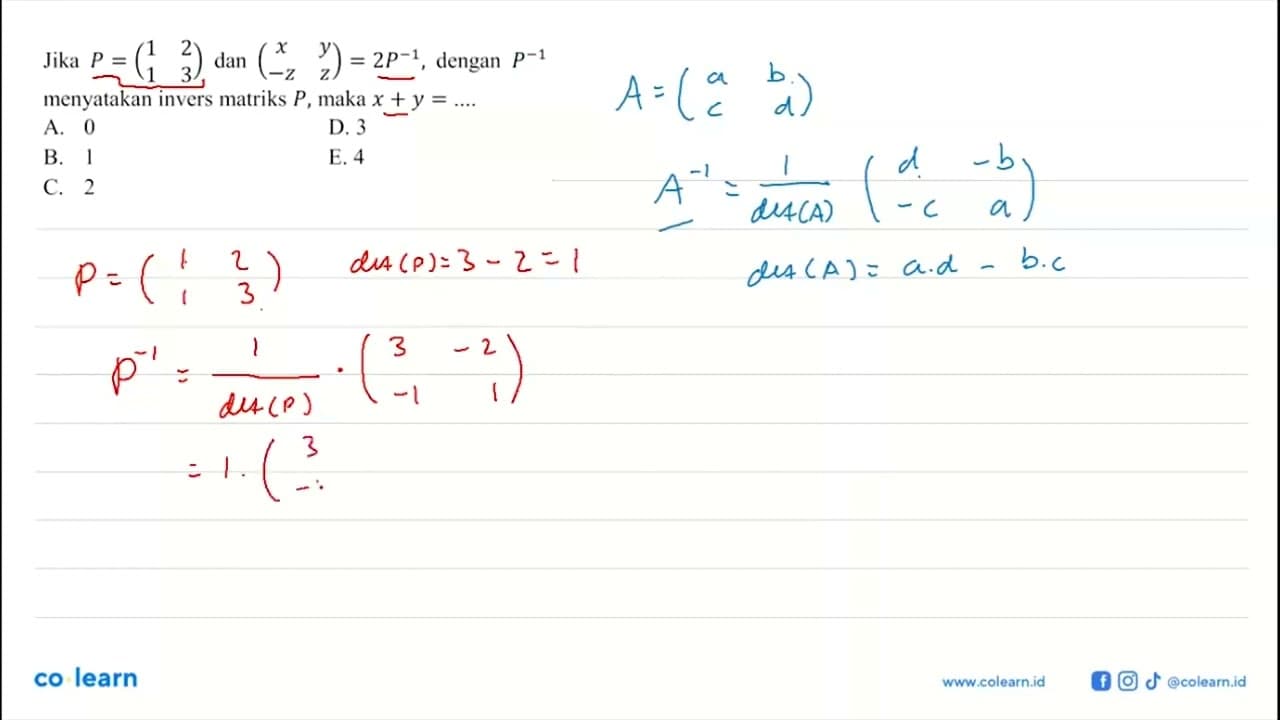 Jika P = (1 2
1 3) dan (x y
-z z) = 2P⁻¹, dengan P⁻¹
menyatakan invers matriks P, maka x + y = ....
A. 0
D. 3
B. 1
E. 4
C. 2
A = (a b
c d)
A⁻¹ = 1/det(A) (d -b
-c a)
det(A) = a.d - b.c
P = (1 2
1 3)
det(P) = 3 - 2 = 1
P⁻¹ = 1/det(P) · (3 -2
-1 1)
= 1. (3
-
co learn
www.colearn.id
@colearn.id